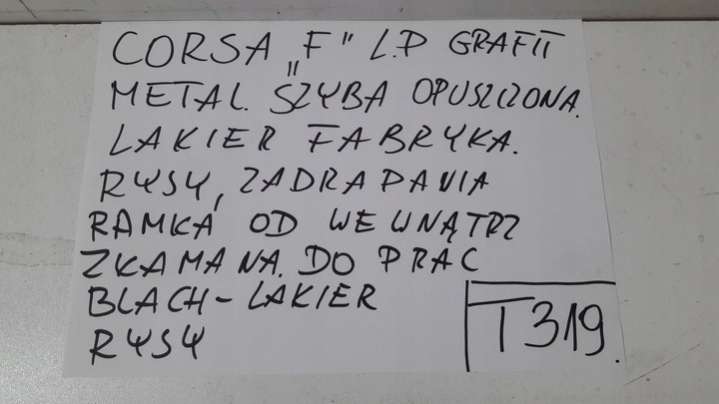 CORSA „F" L.P GRAFIT
METAL. SZYBA OPUSZCZONA.
LAKIER FABRYKA.
RYSY, ZADRAPANIA
RAMKA OD WEWNĄTRZ
ZŁAMANA. DO PRAC
BLACH-LAKIER
RYSY
T319.